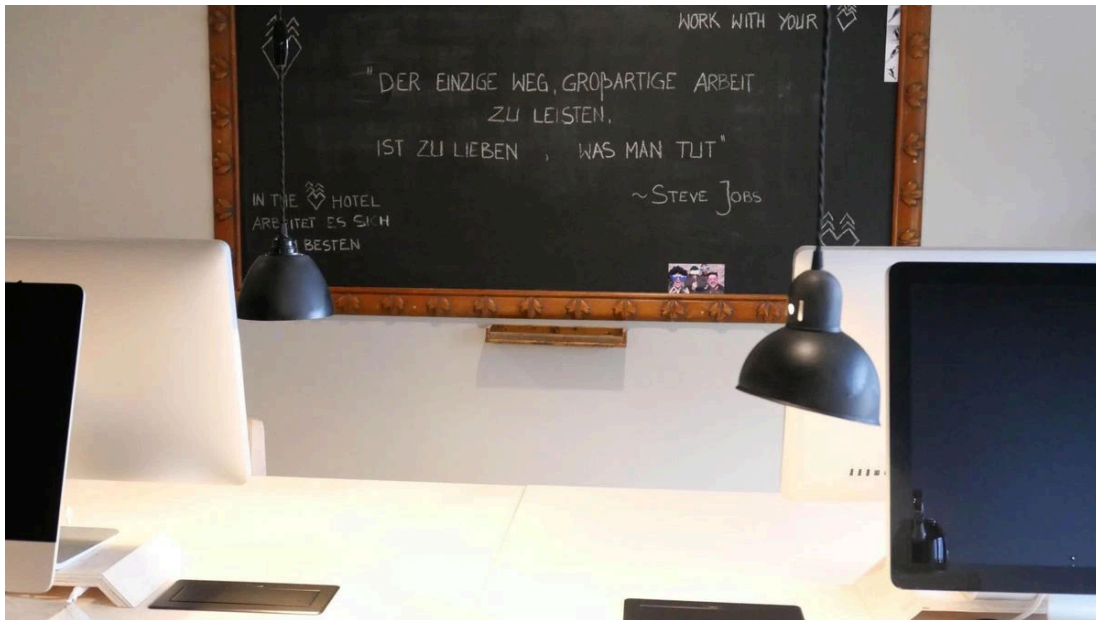 WORK WITH YOUR
"DER EINZIGE WEG, GROßARTIGE ARBEIT
ZU LEISTEN,
IST ZU LIEBEN , WAS MAN TUT"
~STEVE JOBS
IN THE HOTEL
ARBEITET ES SICH
BESTEN